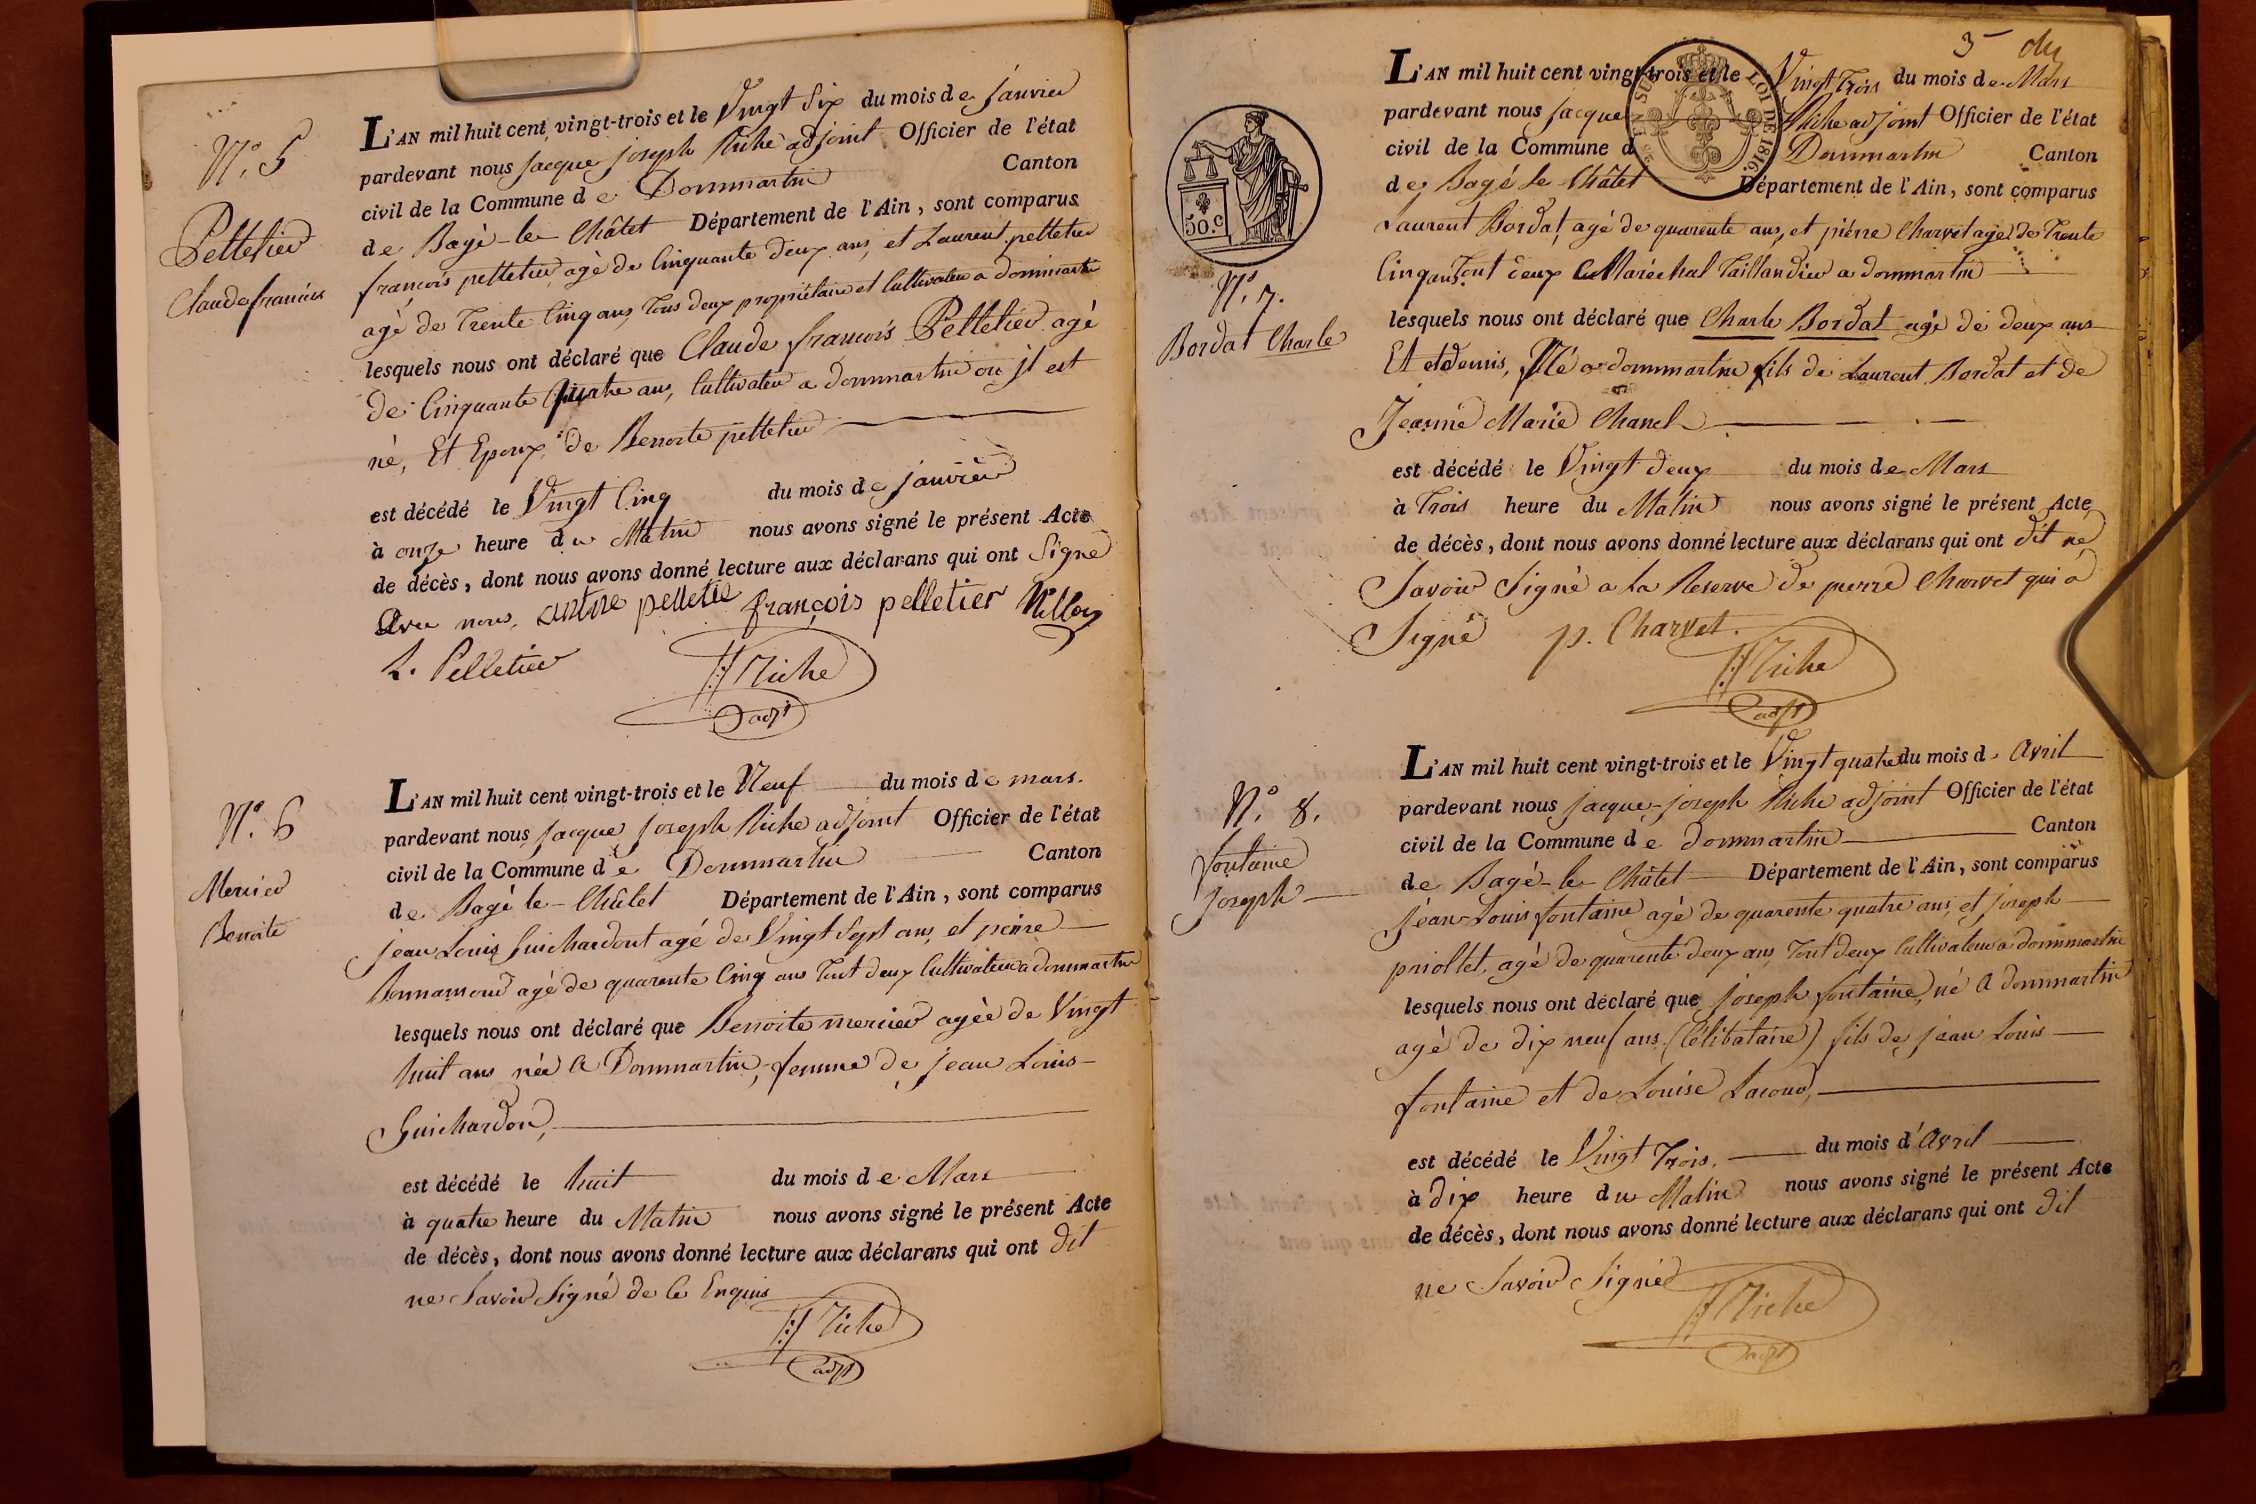 N.° 5
Pelletier
Claude françois
L'AN mil huit cent vingt-trois et le Vingt Six du mois de janvier
pardevant nous jacque joseph Riche adjoint Officier de l'état
civil de la Commune de Dommartin Canton
de Bagé-le-Châtet Département de l'Ain, sont comparus
francois pelletier, agé de Cinquante deux ans, et Laurent pelletier
agé de Trente Cinq ans, Tous deux propriétaire et Cultivateur a dommartin
lesquels nous ont déclaré que Claude francois Pelletier agé
de Cinquante quatre ans, Cultivateur a dommartin ou jl est
né, Et Epoux de Benoite pelletier
est décédé le Vingt Cinq du mois de janvièr
à onze heure du Matin nous avons signé le présent Acte
de décès, dont nous avons donné lecture aux déclarans qui ont Signé
Avec nous, pelletie françois pelletier
L. Pelletier JJ Riche
adjt
N.° 6
Mercier
Benoite
L'AN mil huit cent vingt-trois et le Neuf du mois de mars.
pardevant nous jacque joseph Riche adjoint Officier de l'état
civil de la Commune de Dommartin Canton
de Bagé le-Châtet Département de l'Ain, sont comparus
jean Louis Guichardont agé de Vingt Sept ans, et piérre
Bonnamour agé de quarente Cinq ans Tout deux Cultivateur a dommartin
lesquels nous ont déclaré que Benoite mercier agée de Vingt
huit ans née A Dommartin, femme de jean Louis
Guichardon,
est décédé le huit du mois de Mars
à quatre heure du Matin nous avons signé le présent Acte
de décès, dont nous avons donné lecture aux déclarans qui ont dit
ne Savoir Signé de Ce Enquis
JJ Riche
adjt
3
50.c
EN SUS LOI DE 1816.
N.° 7.
Bordat Charle
L'AN mil huit cent vingt-trois et le Vingt Trois du mois de Mars
pardevant nous jacque Riche adjoint Officier de l'état
civil de la Commune d Dommartin Canton
de Bagé le Châtet Département de l'Ain, sont comparus
Laurent Bordat, agé de quarente ans, et piérre Charvet agé de Trente
Cinq ans. Tout deux Maréchal Taillandier a dommartin
lesquels nous ont déclaré que Charle Bordat agé de deux ans
Et etdemis, Né a dommartin fils de Laurent Bordat et de
Jeanne Marie Chanel
est décédé le Vingt deux du mois de Mars
à Trois heure du Matin nous avons signé le présent Acte
de décès, dont nous avons donné lecture aux déclarans qui ont dit ne
Savoir Signé a La Reserve de pierre Charvet qui a
Signé p. Charvet.
JJ Riche
adjt
N.° 8.
fontaine
Joseph
L'AN mil huit cent vingt-trois et le Vingt quatre du mois d'Avril
pardevant nous jacque-joseph Riche adjoint Officier de l'état
civil de la Commune de dommartin Canton
de Bagé-le-Châtet Département de l'Ain, sont comparus
jean-Louis fontaine agé de quarente quatre ans, et joseph
priollet, agé de quarente deux ans, Tout deux Cultivateur a dommartin
lesquels nous ont déclaré que joseph fontaine, né A dommartin
agé de dix neuf ans (Célibataire) fils de jean Louis
fontaine et de Louise Lacour,
est décédé le Vingt Trois, du mois d'Avril
à dix heure du Matin nous avons signé le présent Acte
de décès, dont nous avons donné lecture aux déclarans qui ont dit
ne Savoir Signé
JJ Riche
adjt